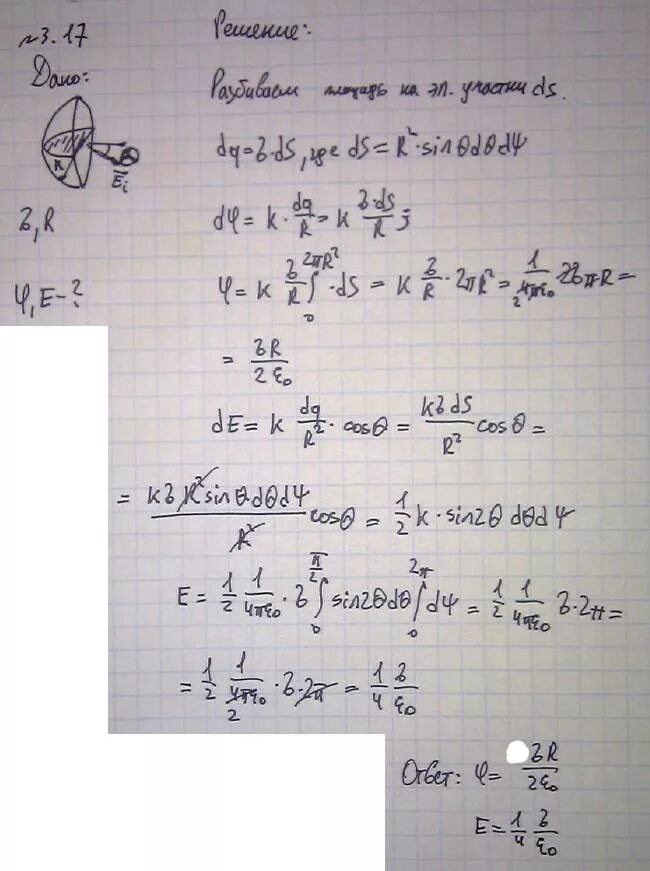 №3.17
Решение:
Дано:
Разбиваем площадь на эл. участки ds.
R
E̅ᵢ
dq = σ·dS, где dS = R²·sinθdθdψ
σ, R
dφ = k·dq/R = k σ·dS/R ;
φ, E - ?
φ = k σ/R ∫₀^{2πR²} ·dS = k σ/R · 2πR² = 1/(4πε₀) 2σπR =
2
= σR/2ε₀
dE = k dq/R² · cosθ = kσdS/R² cosθ =
= kσR²sinθdθdψ/R² cosθ = 1/2 k·sin2θ dθdψ
E = 1/2 1/4πε₀ · σ ∫₀^{π/2} sin2θdθ ∫₀^{2π} dψ = 1/2 1/4πε₀ σ·2π =
= 1/2 1/4πε₀ · σ·2π = 1/4 σ/ε₀
2
Ответ: φ = σR/2ε₀
E = 1/4 σ/ε₀